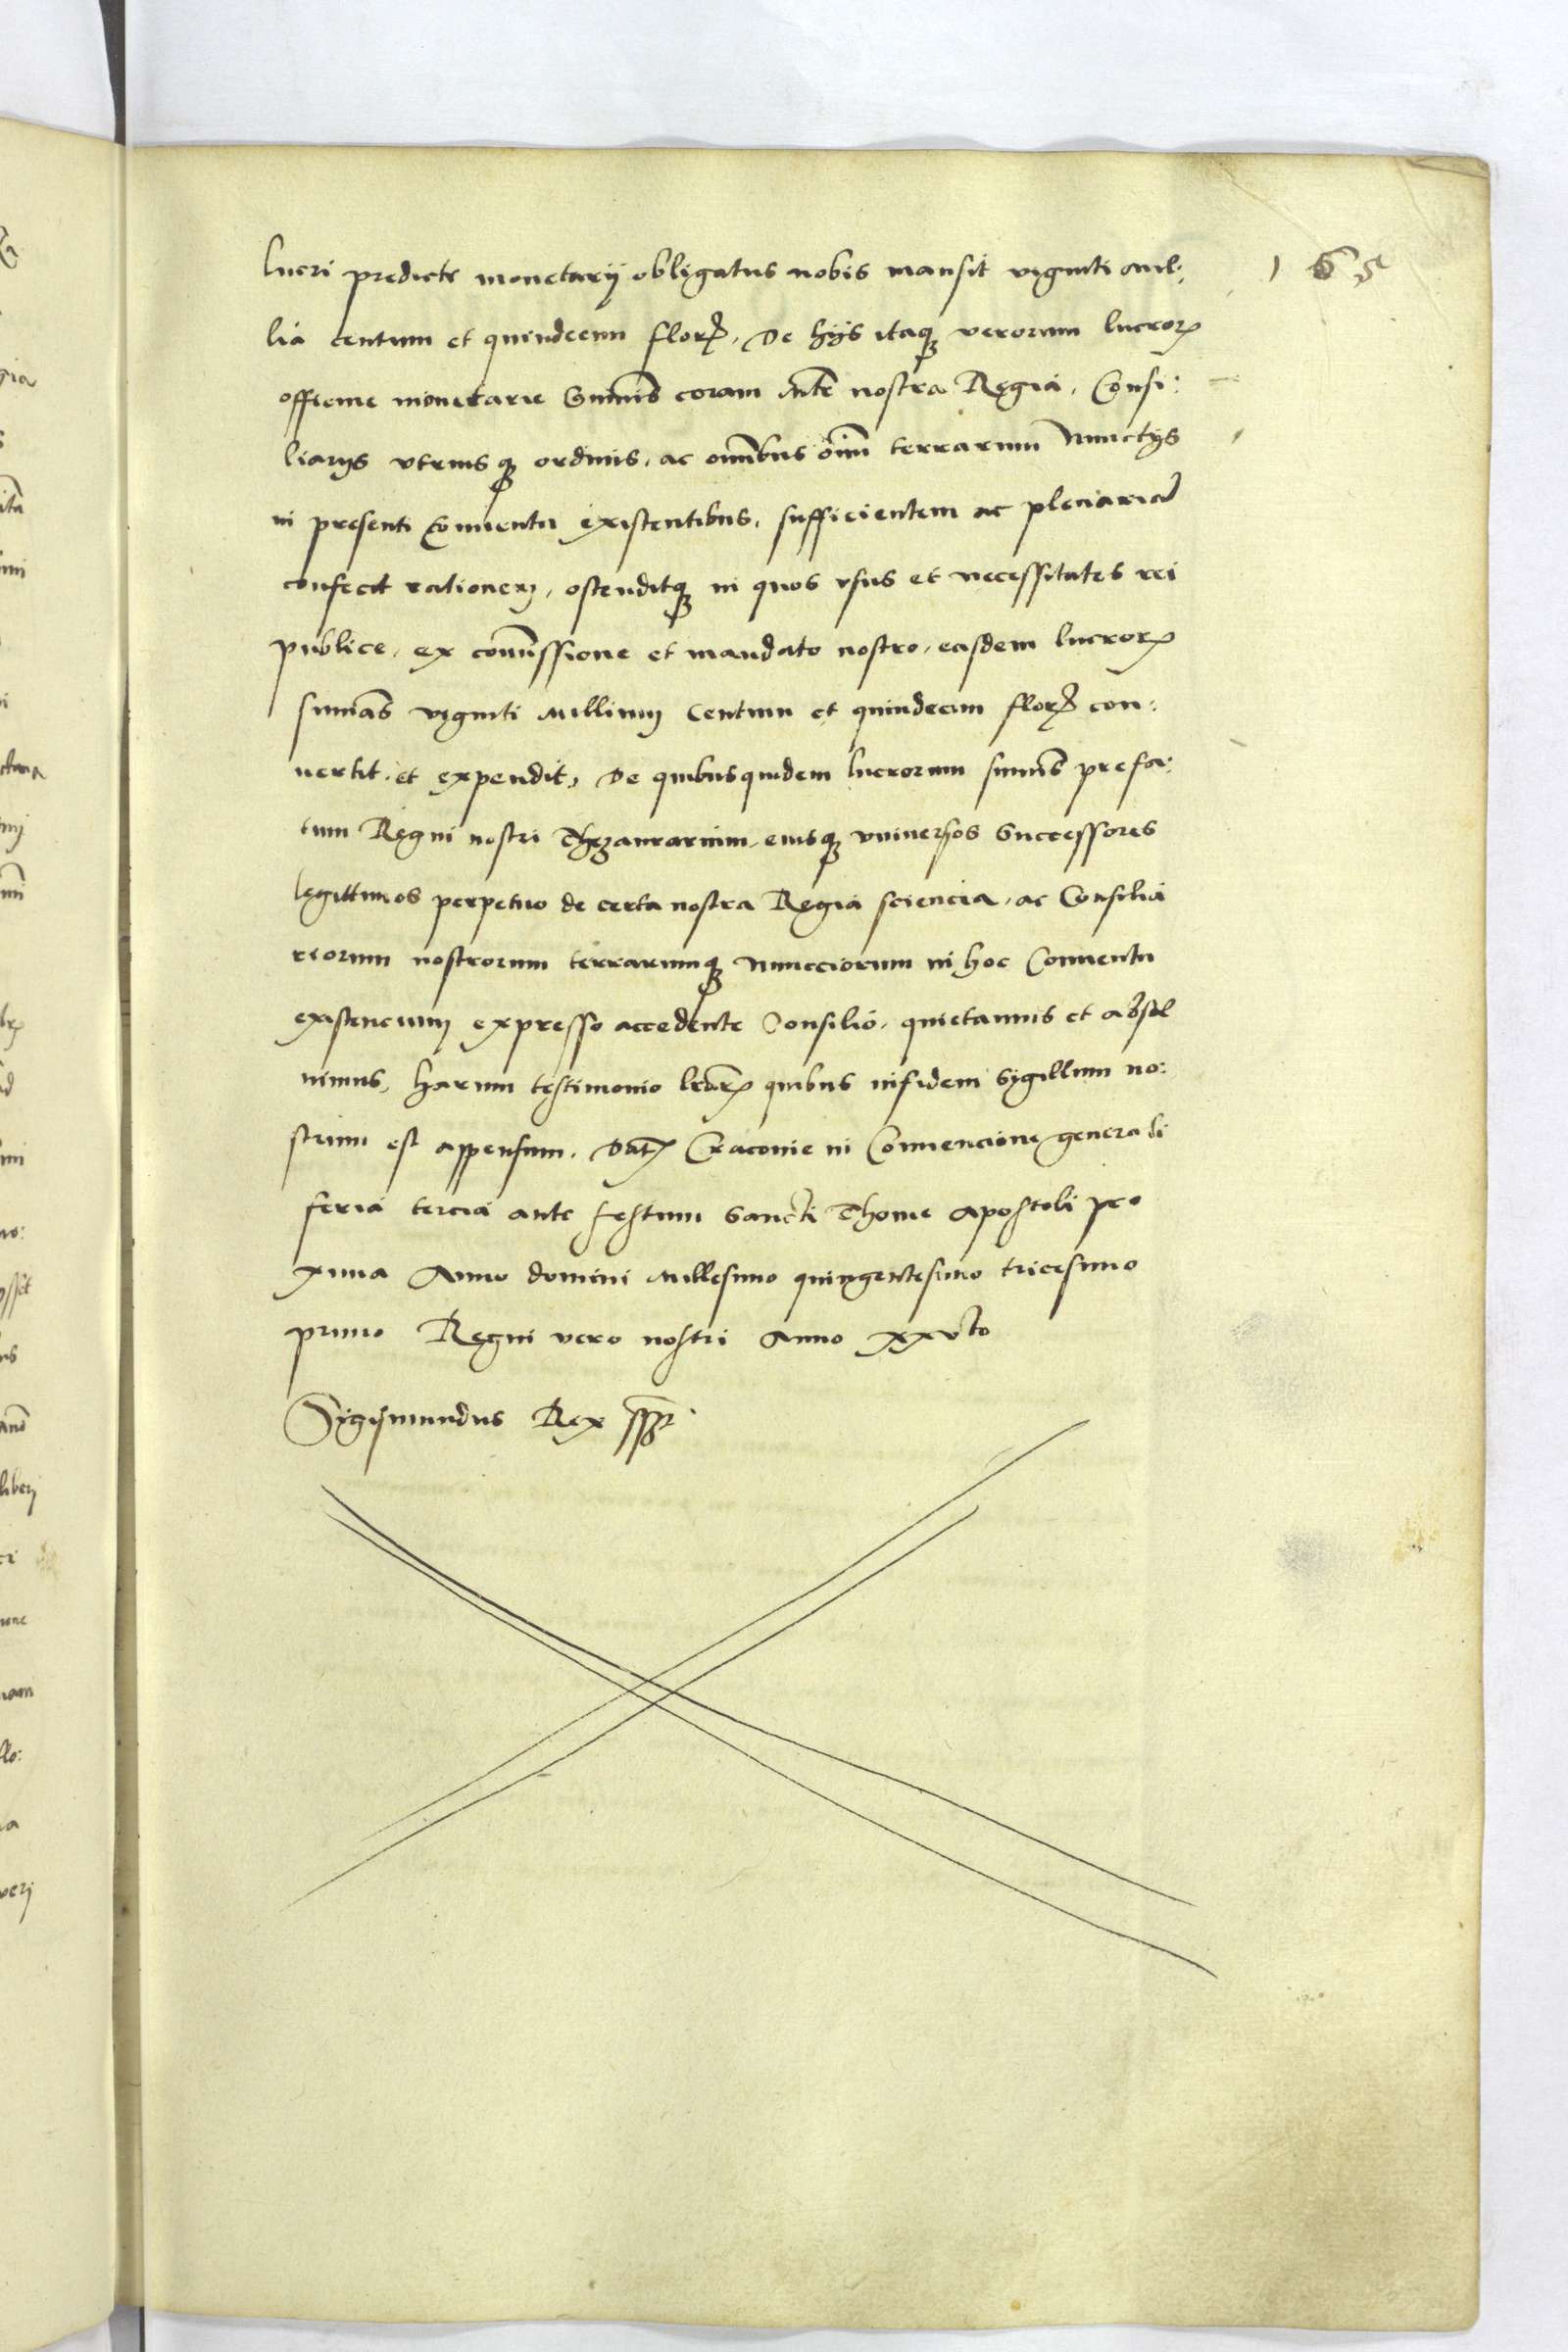 165
lucri predicte monetarij obligatus nobis mansit viginti mil:
lia centum et quindecim florꝫ, De hijs itaqꝫ verorum lucroꝝ
officine monetarie sum̄is coram Mte nostra Regia, Consi:
liarijs vtriusqꝫ ordinis, ac om̄ibus om̄i terrarum Nunctijs
in presenti Conuentu existentibus, sufficientem ac plenariā
confecit rationem, ostenditqꝫ in quos vsus et necessitates rei
publice, ex com̄issione et mandato nostro, easdem lucroꝝ
sum̄as viginti millium Centum et quindecim florꝫ con:
uertit et expendit, De quibusquidem lucrorum sum̄is prefa:
tum Regni nostri Thezaurarium, eiusqꝫ vniuersos Successores
legittimos perpetuo de certa nostra Regia sciencia, ac Consilia
riorum nostrorum terrarumqꝫ Nuncciorum in hoc Conuentu
existencium expresso accedente Consilio, quietamus et absol
uimus, harum testimonio lr̄aꝝ quibus infidem sigillum no:
strum est appensum. Datꝫ Cracouie in Conuencione generali
feria tercia ante festum Sancti Thome Apostoli pro
xima Anno domini Millesimo quingentesimo tricesimo
primo Regni vero nostri Anno xxvto
Sigismundus Rex sspt